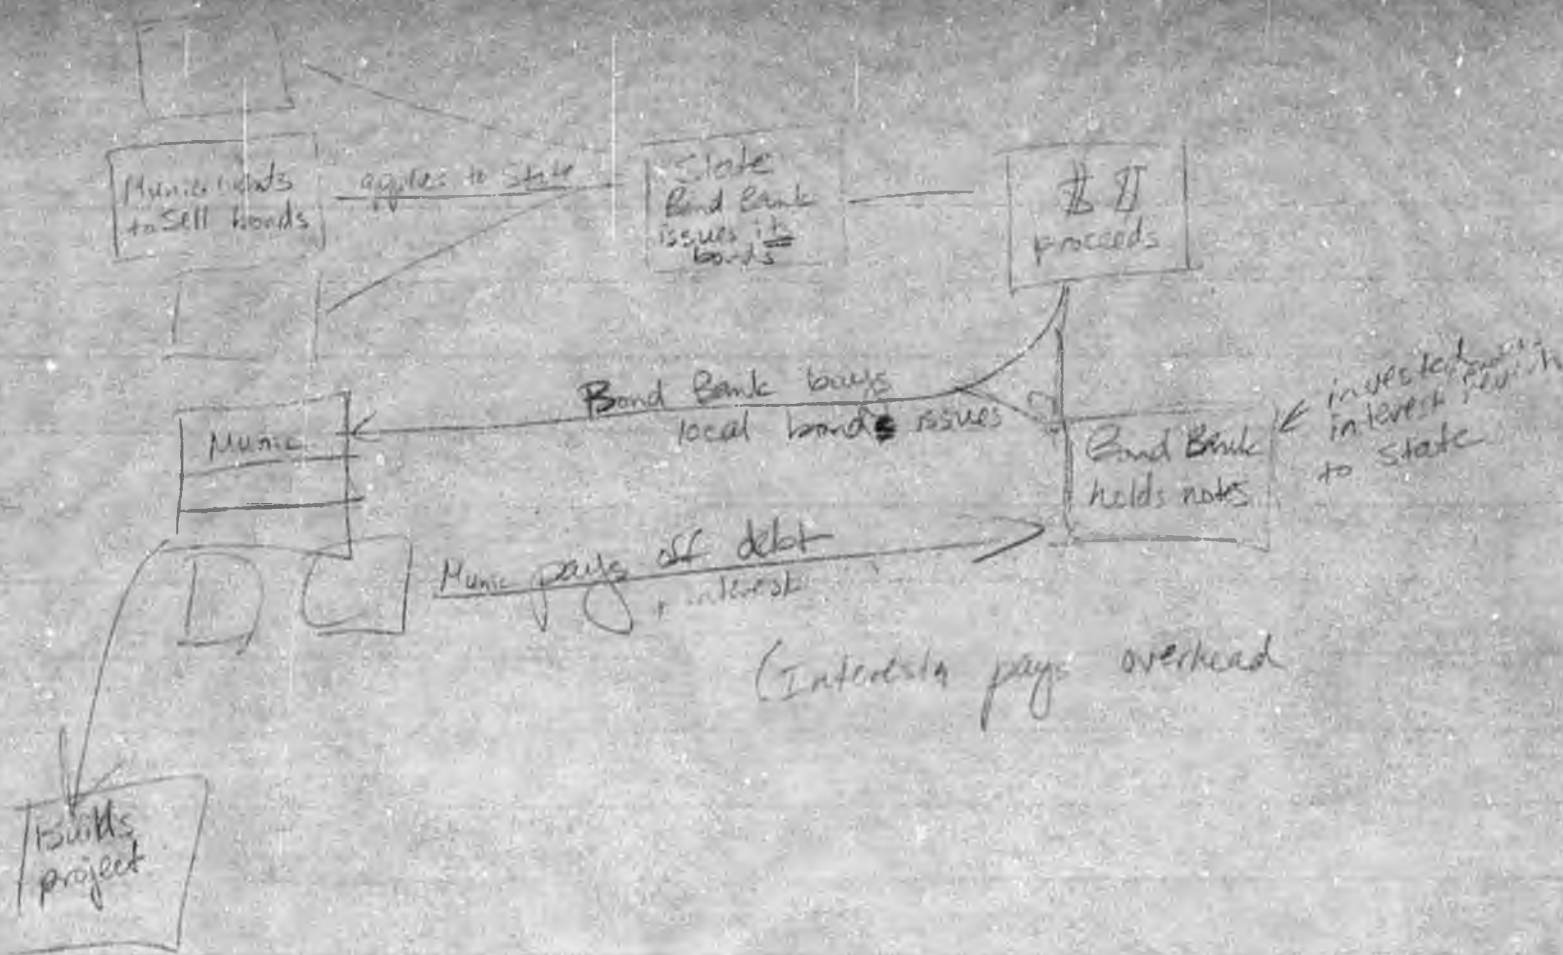 Munic wants
to sell bonds
applies to State
State
Bond Bank
issues its
bonds
$ $
proceeds
Bond Bank buys
local bonds issues
Munic
Bond Bank
holds notes
invested
interest
to state
Munic pays off debt
+ interest
(Interest pays overhead
Builds
project